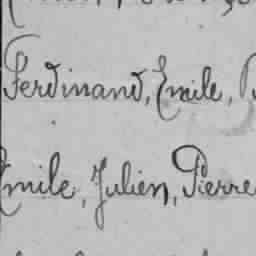 Ferdinand, Emile,
Emile, Julien, Pierre